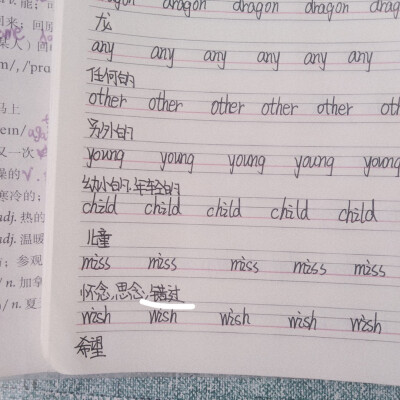 dragon dragon dragon dragon
龙
any any any any any
任何的
other other other other other oth
另外的
young young young young young
幼小的,年轻的
child child child child child
儿童
miss miss miss miss miss
怀念,思念,错过
wish wish wish wish wish
希望
能;
回来;
某人)
马上
又一次
adj. 热的
adj. 温暖
参观
n. 加拿
n. 夏